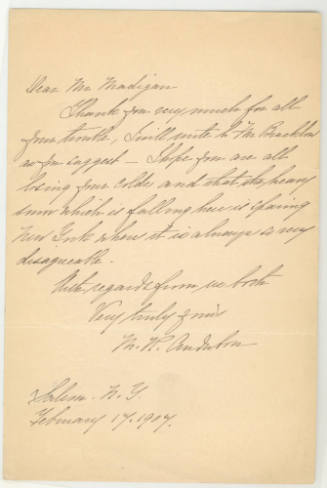 Dear Mr. Madigan
Thank you very much for all
your trouble, I will write to Mr.
as you suggest — I hope you are all
losing your colds and that the heavy
snow which is falling here is sparing
New York where it is always so very
disagreeable.
With regards from us both
Very truly yours
M. R. Audubon
Salem. N. Y.
February 17. 1907.